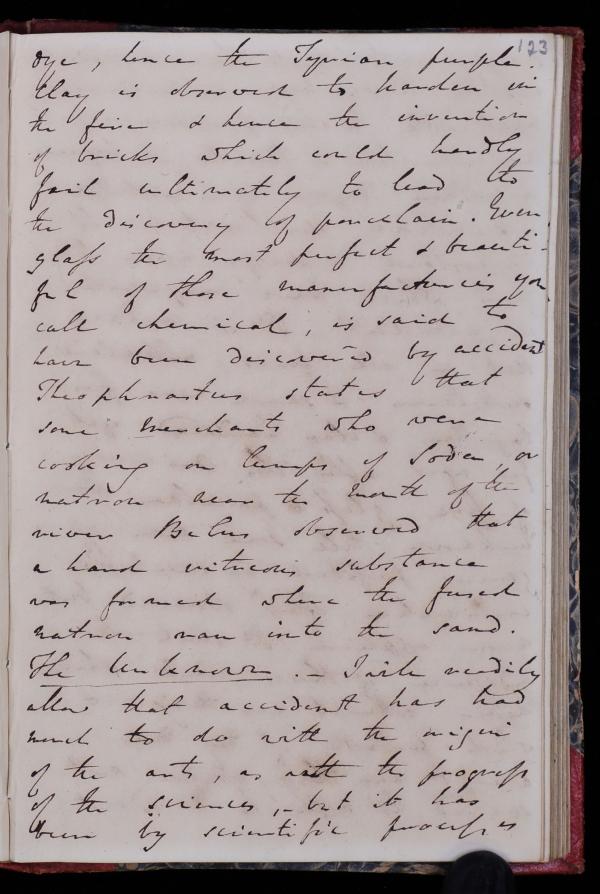 123
dye, hence the Tyrian purple.
Clay is observed to harden in
the fire & hence the invention
of bricks which could hardly
fail ultimately to lead to
the discovery of porcelain. Even
glass the most perfect & beauti-
ful of those manufactures you
call chemical, is said to
have been discovered by accident
Theophrastus states that
some merchants who were
cooking on lumps of Soda or
natron near the mouth of the
river Belus observed that
a hard vitreous substance
was formed where the fused
natron ran into the sand.
The Unknown. – I will readily
allow that accident has had
much to do with the origin
of the arts, as with the progress
of the sciences, – but it has
been by scientific processes